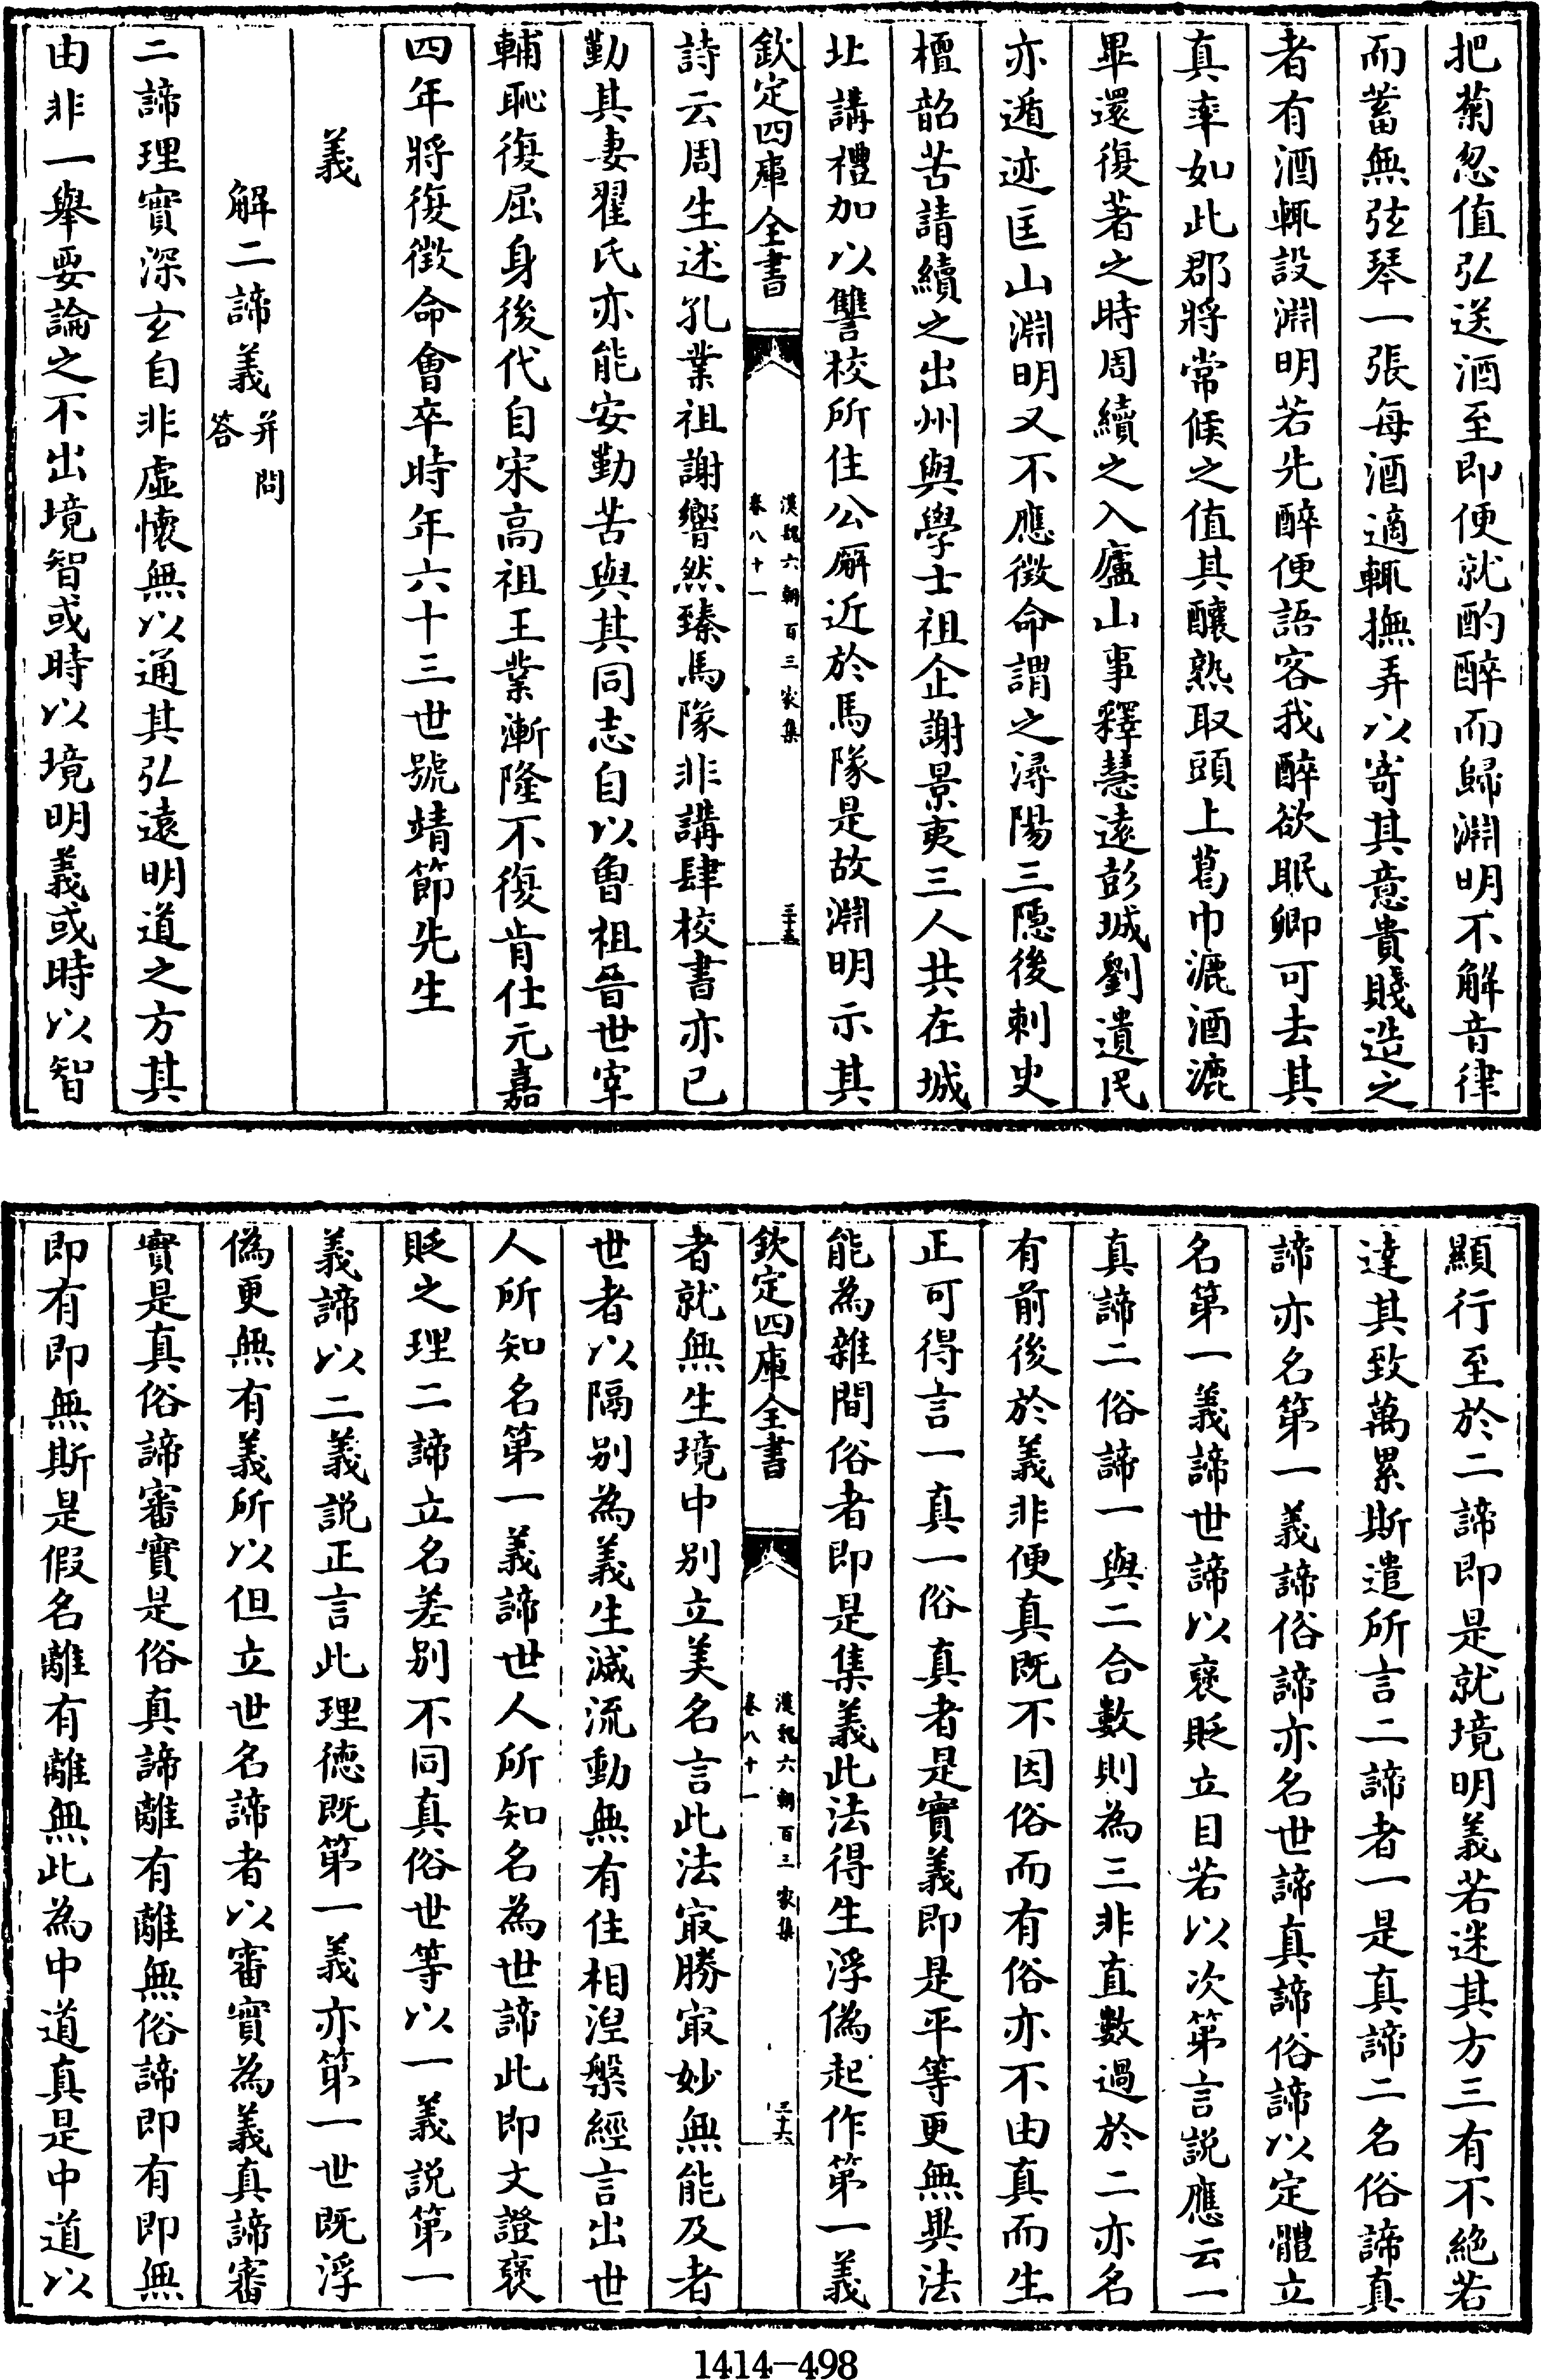 把菊忽值弘送酒至即便就酌醉而歸淵明不解音律
而蓄無弦琴一張每酒適輒撫弄以寄其意貴賤造之
者有酒輒設淵明若先醉便語客我醉欲眠卿可去其
真率如此郡將常候之值其釀熟取頭上葛巾漉酒漉
畢還復著之時周續之入廬山事釋慧遠彭城劉遺民
亦遁迹匡山淵明又不應徵命謂之潯陽三隱後刺史
檀韶苦請續之出州與學士祖企謝景夷三人共在城
北講禮加以讐校所住公廨近於馬隊是故淵明示其
欽定四庫全書
漢魏六朝百三家集
卷八十一
三十五
詩云周生述孔業祖謝響然臻馬隊非講肆校書亦已
勤其妻翟氏亦能安勤苦與其同志自以曾祖晉世宰
輔恥復屈身後代自宋高祖王業漸隆不復肯仕元嘉
四年將復徵命會卒時年六十三世號靖節先生
義
解二諦義并問答
二諦理實深玄自非虛懷無以通其弘遠明道之方其
由非一舉要論之不出境智或時以境明義或時以智
顯行至於二諦即是就境明義若迷其方三有不絶若
達其致萬累斯遣所言二諦者一是真諦二名俗諦真
諦亦名第一義諦俗諦亦名世諦真諦俗諦以定體立
名第一義諦世諦以褒貶立目若以次第言説應云一
真諦二俗諦一與二合數則為三非直數過於二亦名
有前後於義非便真既不因俗而有俗亦不由真而生
正可得言一真一俗真者是實義即是平等更無異法
能為雜間俗者即是集義此法得生浮偽起作第一義
欽定四庫全書
漢魏六朝百三家集
卷八十一
三十六
者就無生境中别立美名言此法㝡勝㝡妙無能及者
世者以隔别為義生滅流動無有住相湼槃經言出世
人所知名第一義諦世人所知名為世諦此即文證褒
貶之理二諦立名差别不同真俗世等以一義説第一
義諦以二義説正言此理德既第一義亦第一世既浮
偽更無有義所以但立世名諦者以審實為義真諦審
實是真俗諦審實是俗真諦離有離無俗諦即有即無
即有即無斯是假名離有離無此為中道真是中道以
1414—498